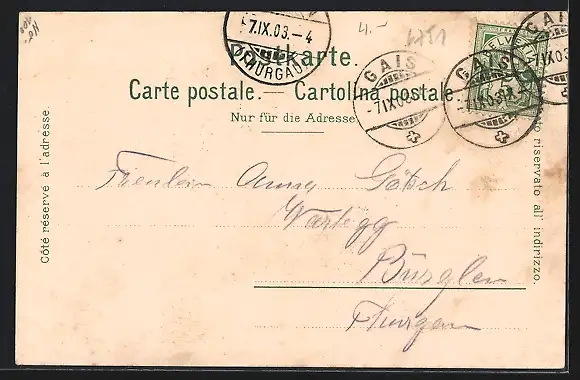 4.-
4751
-7.IX.03.-4
(THURGAU)
GAIS
-7.IX.03.
GAIS
-7.IX.03.
GAIS
IX.03
HELVETIA
Postkarte.
Carte postale. — Cartolina postale.
Nur für die Adresse
Côté réservé à l'adresse.
riservato all' indirizzo.
Freulein Anna Götsch
Wartegg
Bürglen
Turgau